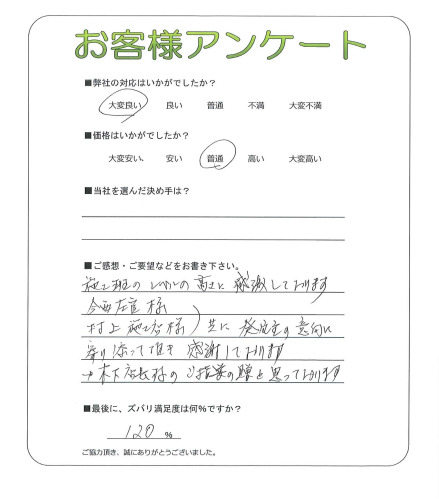 お客様アンケート
■弊社の対応はいかがでしたか?
大変良い 良い 普通 不満 大変不満
■価格はいかがでしたか?
大変安い、 安い 普通 高い 大変高い
■当社を選んだ決め手は?
■ご感想・ご要望などをお書き下さい。
施工班のレベルの高さに感激しております
様
村上 様 共に 発注主の意向に
寄り添って頂き 感謝しております
→木下店長様のご指導の賜と思っております
■最後に、ズバリ満足度は何%ですか?
120 %
ご協力頂き、誠にありがとうございました。